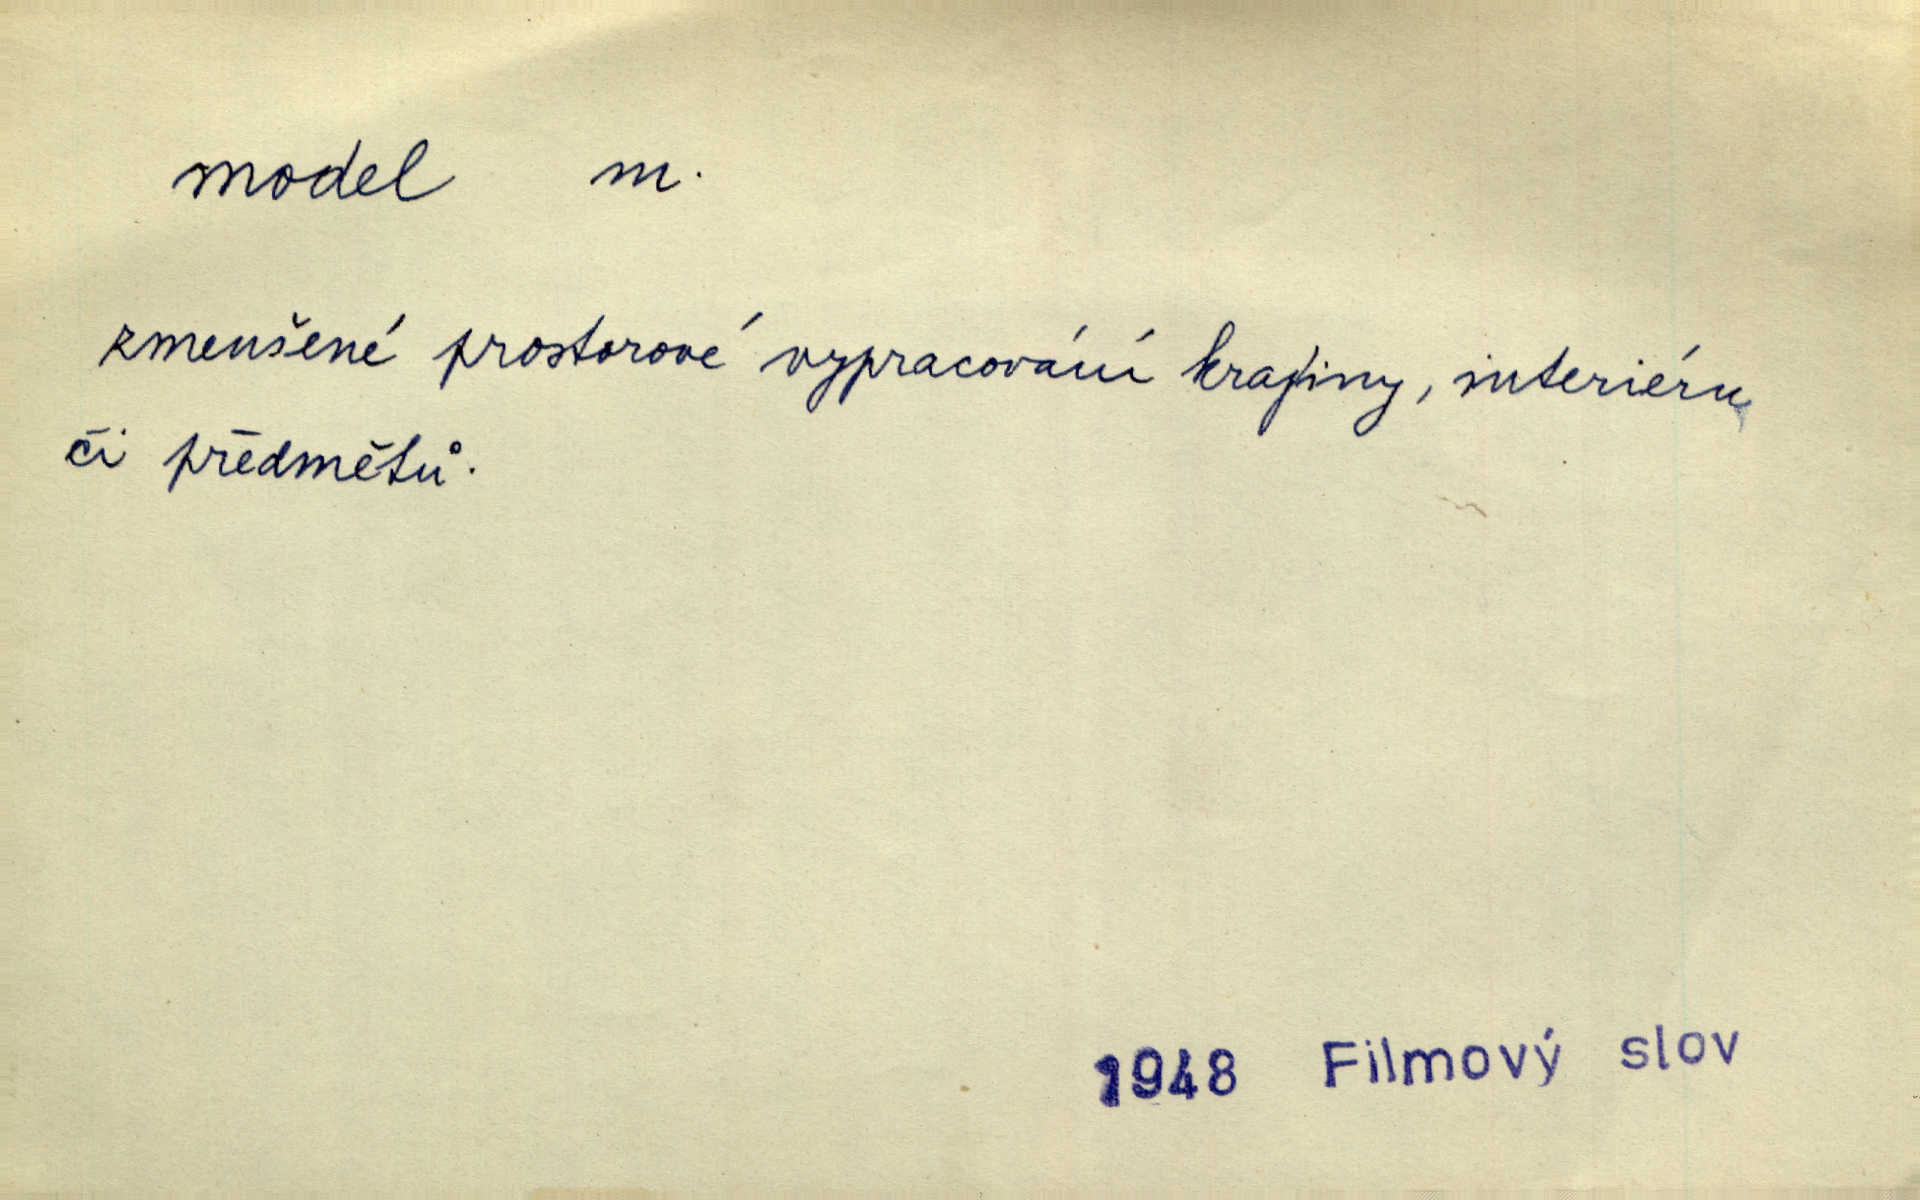 model m.
zmenšené prostorové vypracování krajiny, interiéru
či předmětů.
1948 Filmový slov